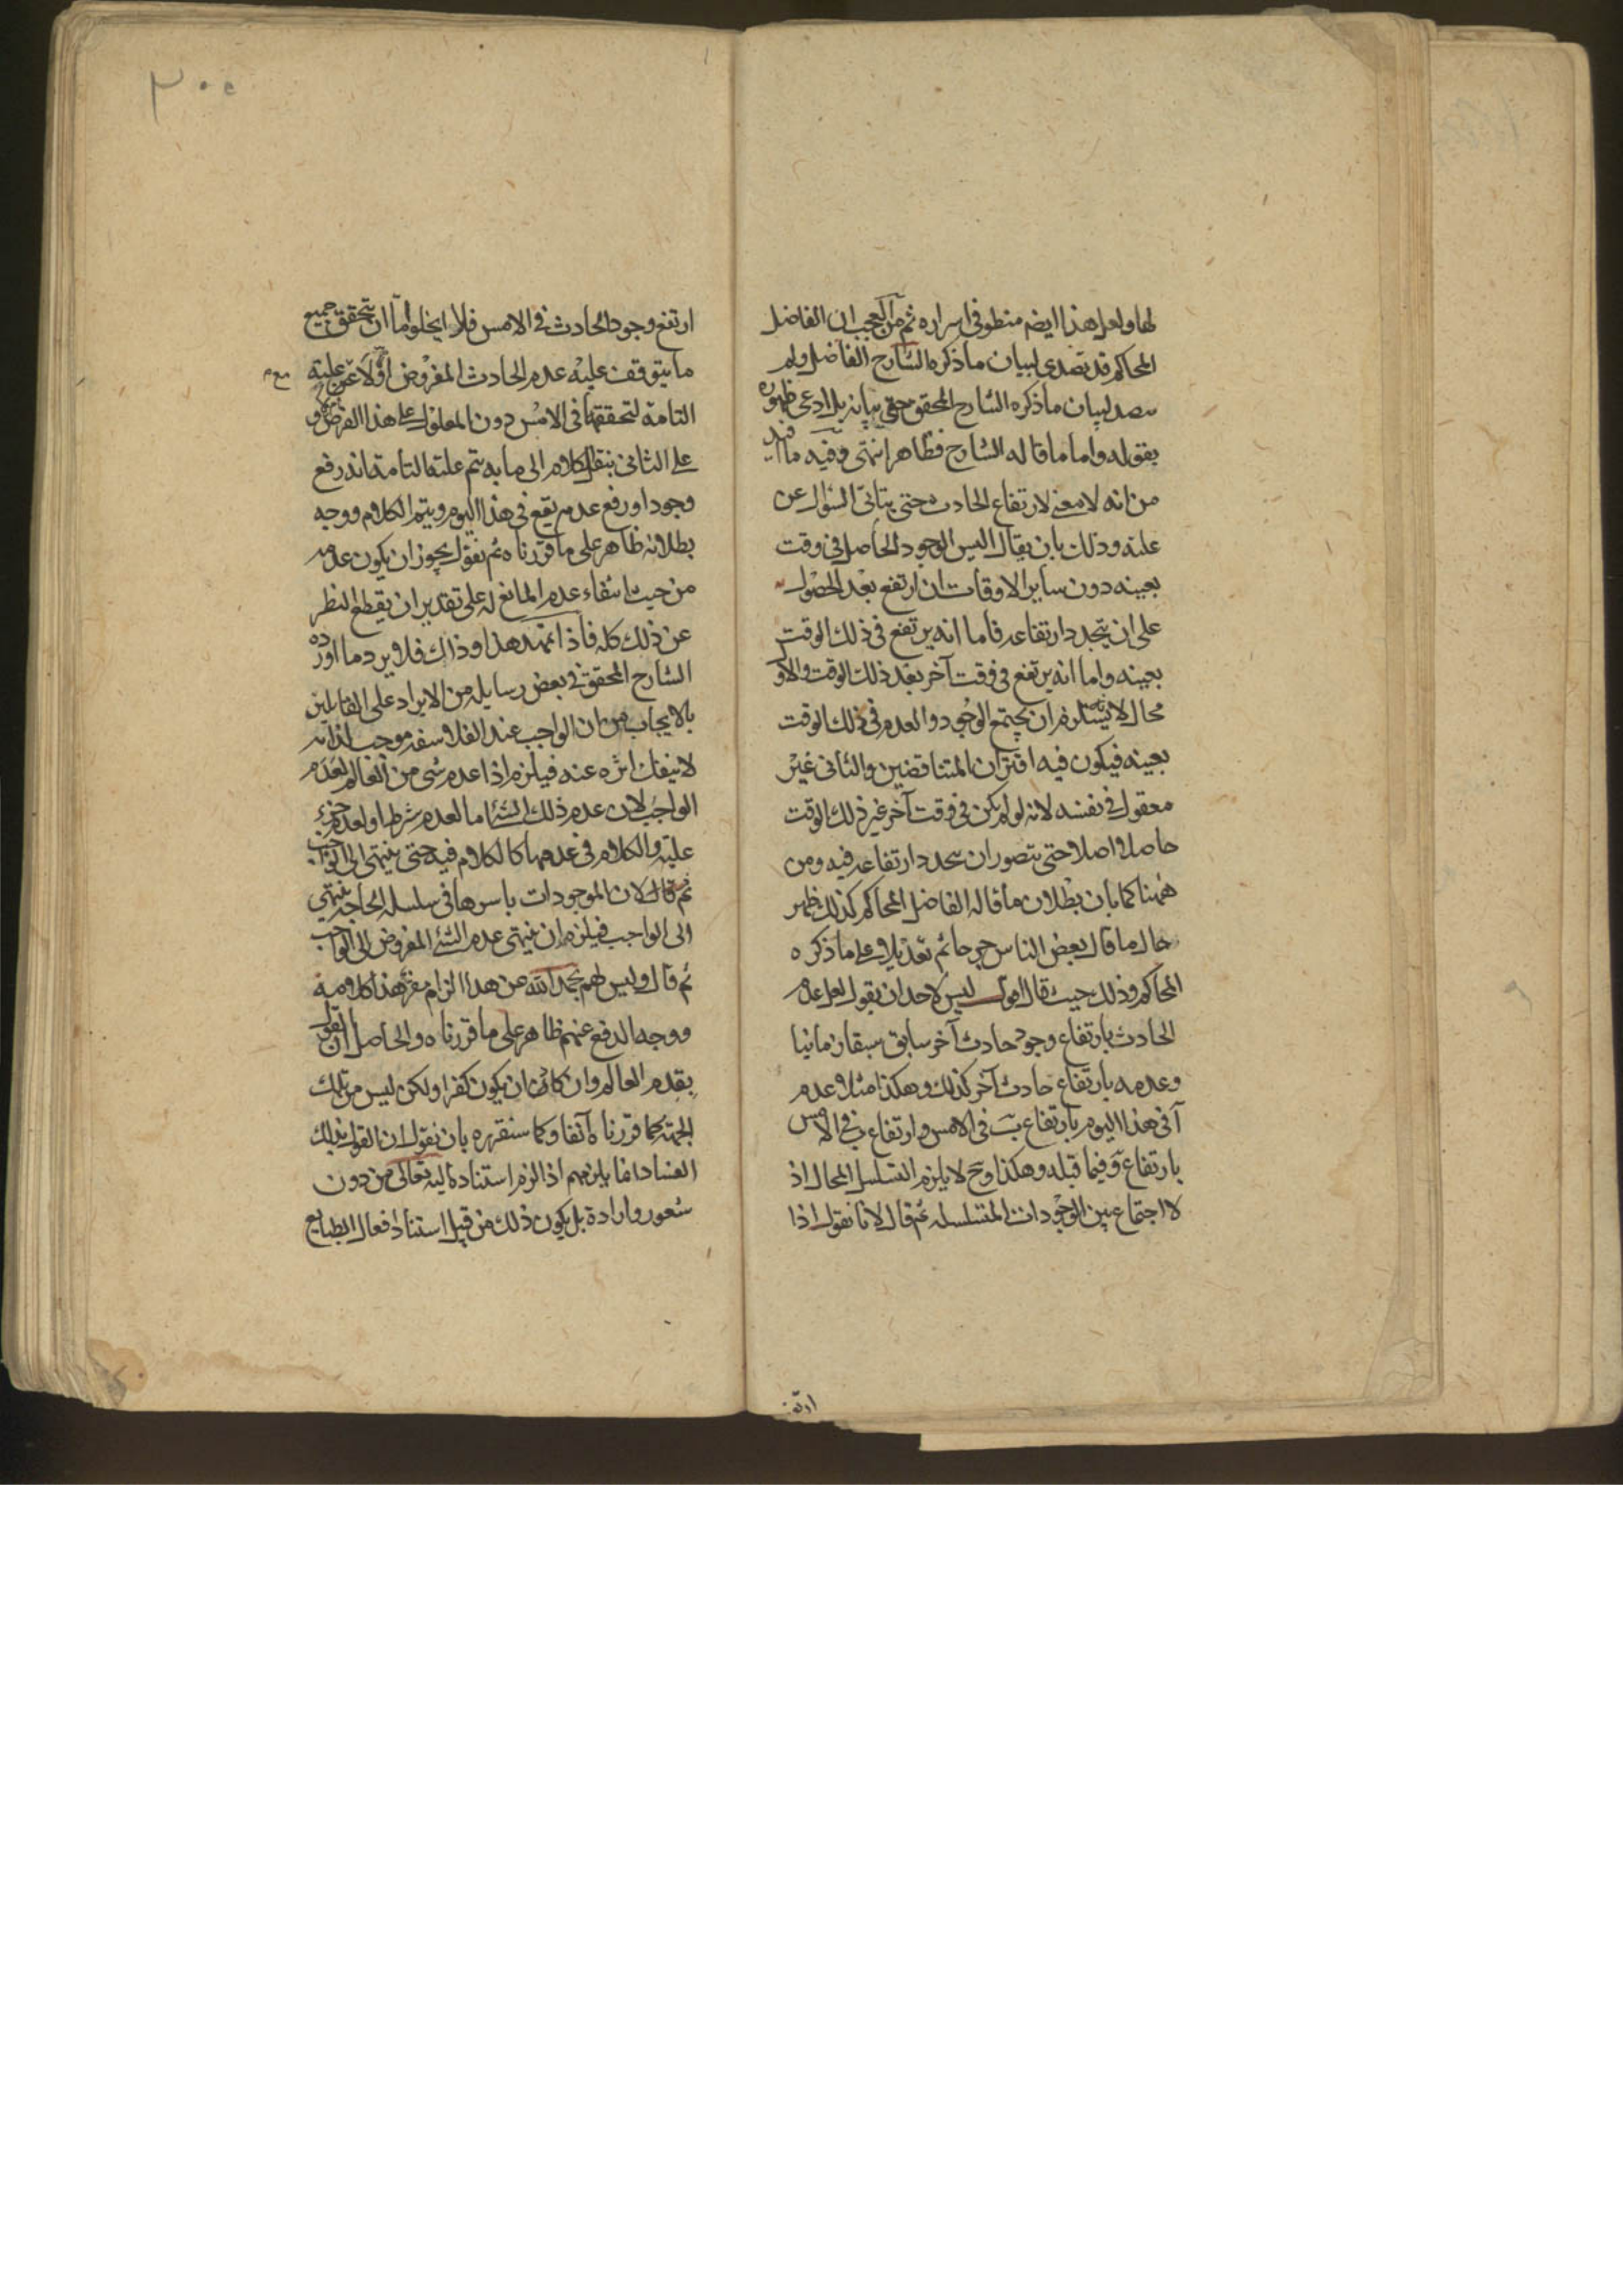 لها ولعل هذا ايضم منطو في اسراره ثم من العجب ان الفاضل
المحاكم قد تصدى لبيان ما ذكره الشارح الفاضل ولم
يصد لبيان ما ذكره الشارح المحقق حق بيانه بل ادعى ظهوره
بقوله واما ما قاله الشارح فظاهر انتهى وفيه ما فيه
من انه لا معنى لارتفاع الحادث حتى يتاتى السؤال عن
علته وذلك بان يقال اليس الوجود الحاصل في وقت
بعينه دون ساير الاوقات ان ارتفع بعد الحصول
على ان يتجدد ارتفاعه فاما انه يرتفع في ذلك الوقت
بعينه واما انه يرتفع في وقت آخر بعد ذلك الوقت والاو
محال لا يستلزم ان يجتمع الوجود والعدم في ذلك الوقت
بعينه فيكون فيه اقتران المتناقضين والثاني غير
معقول في نفسه لانه لو لم يكن في وقت آخر غير ذلك الوقت
حاصلا اصلا حتى يتصور ان يتجدد ارتفاعه فيه ومن
ههنا كما بان بطلان ما قاله الفاضل المحاكم كذلك ظهر
حال ما قال بعض الناس جرحا ثم تعديلا على ما ذكره
المحاكم وذلك حيث قال اقول ليس لاحد ان يقول لعل عدم
الحادث بارتفاع وجود حادث آخر سابق سبقا زمانيا
وعدمه بارتفاع حادث آخر كذلك وهكذا مثلا عدم
آ في هذا اليوم بارتفاع ب في الامس وارتفاع ب في الامس
بارتفاع ج فيما قبله وهكذا وح لا يلزم التسلسل المحال اذ
لا اجتماع بين الوجودات المتسلسله ثم قال لانا نقول اذا
ارتفع
٣٠٥
ارتفع وجود الحادث في الامس فلا يخلو اما ان يتحقق جميع
ما يتوقف عليه عدم الحادث المفروض اولا عن علته
التامة لتحققها في الامس دون المعلول على هذا الفرض و
على الثاني ينقل الكلام الى ما به يتم علته التامة انه رفع
وجود او رفع عدم يقع في هذا اليوم ويتم الكلام ووجه
بطلانه ظاهر على ما قررناه ثم نقول يجوز ان يكون عدمه
من حيث انتفاء عدم المانع له على تقدير ان يقطع النظر
عن ذلك كله فاذا تمهد هذا وذاك فلا يرد ما اورده
الشارح المحقق في بعض رسايله من الايراد على القايلين
بالايجاب من ان الواجب عند الفلاسفه موجب لذاته
لا ينفك اثره عنه فيلزم اذا عدم شى من العالم لعدم
الواجب لان عدم ذلك الشئ اما لعدم شرطه او لعدم جزء
علته والكلام في عدمها كالكلام فيه حتى ينتهى الى الواجب
ثم قال لان الموجودات باسرها في سلسله الحاجه ينتهي
الى الواجب فيلزم ان ينتهى عدم الشئ المفروض الى الواجب
ثم قال وليس لهم بحمد الله عن هذا الزام مفر هذا كلامه
ووجه الدفع عنهم ظاهر على ما قررناه والحاصل ان القول
بقدم العالم وان كان يكون كفرا ولكن ليس من تلك
الجهة كما قررناه آنفا وكما سنقرره بان نقول ان القول بذلك
الفساد انما يلزمهم اذا لزم استناده اليه تعالى من دون
شعور وارادة بل يكون ذلك من قبيل استناد افعال الطبايع